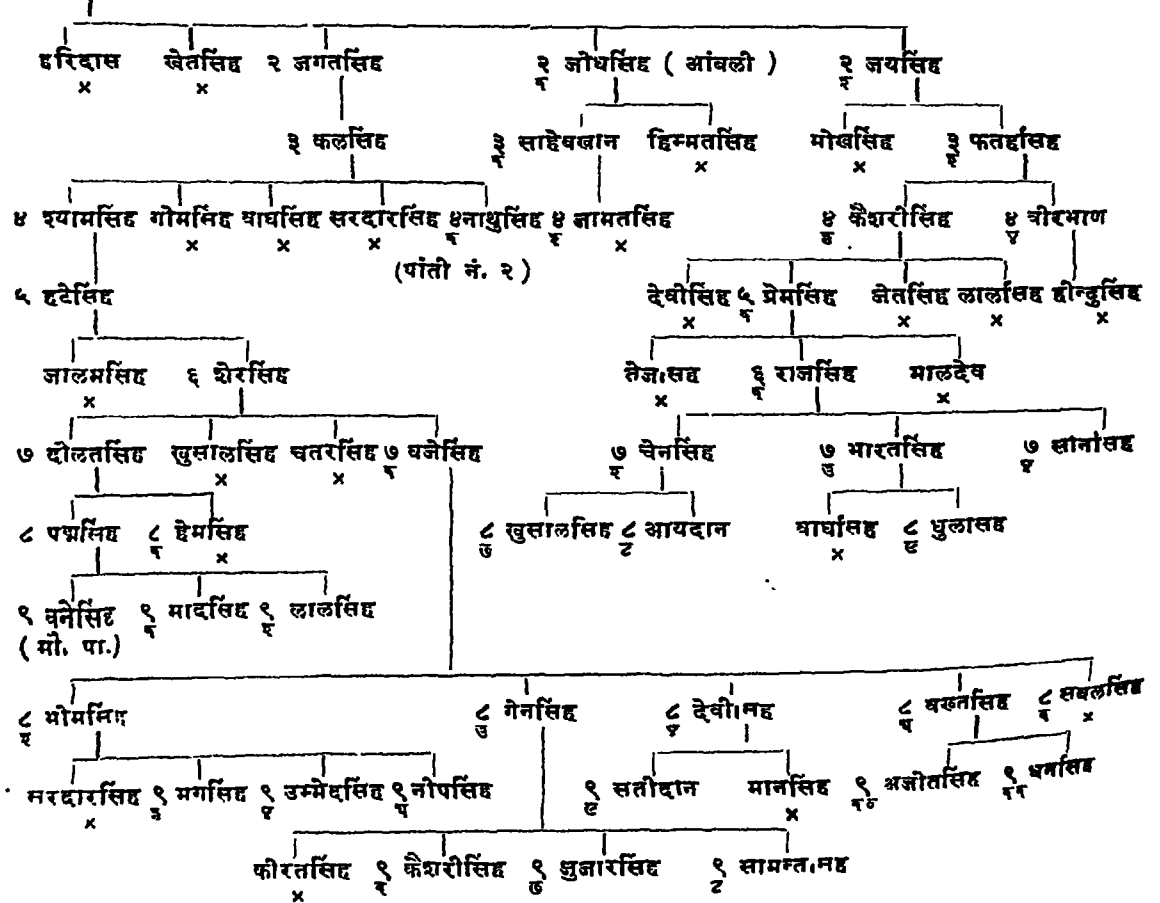 हरिदास खेतसिंह २ जगतसिंह २/१ जोधसिंह ( आंबली ) २/२ जयसिंह
× ×
३ कलसिंह ३/१ साहेबखान हिम्मतसिंह मोखसिंह ३/२ फतहसिंह
× ×
४ श्यामसिंह गोमसिंह वाघसिंह सरदारसिंह ४/१ नाथुसिंह ४/२ जामतसिंह ४/३ कैशरीसिंह ४/४ वीरभाण
× × × ×
(पांती नं. २)
५ हटेसिंह देवीसिंह ५/१ प्रेमसिंह जेतसिंह लालसिंह हीन्दुसिंह
× × × ×
जालमसिंह ६ शेरसिंह तेजसिंह ६/१ राजसिंह मालदेव
× × ×
७ दोलतसिंह खुसालसिंह चतरसिंह ७/१ वजेसिंह ७/२ चेनसिंह ७/३ भारतसिंह ७/४
× ×
८ पद्मसिंह ८/१ हेमसिंह ८/७ खुसालसिंह ८/८ आयदान वाघसिंह ८/९ धुलासिंह
× ×
९ वनेसिंह ९/१ मादसिंह ९/२ लालसिंह
(मौ. पा.)
८/२ भोमसिंह ८/३ गेनसिंह ८/४ देवीसिंह ८/५ वख्तसिंह ८/६ सबलसिंह
×
सरदारसिंह ९/३ मगसिंह ९/४ उम्मेदसिंह ९/५ नोपसिंह ९/९ सतीदान मानसिंह ९/१० अजीतसिंह ९/११
× ×
कीरतसिंह ९/६ कैशरीसिंह ९/७ झुजारसिंह ९/८ सामन्तसिंह
×